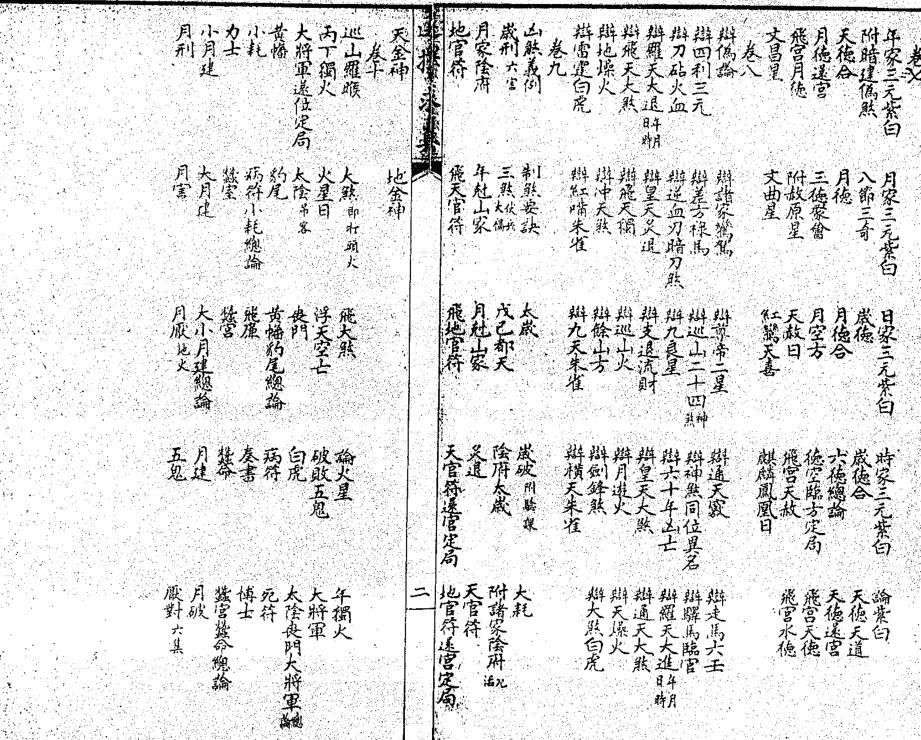 卷七
年家三元紫白 月家三元紫白 日家三元紫白 時家三元紫白 論紫白
附暗建傌煞 八節三奇 歲德 歲德合 天德天道
天德合 月德 月德合 六德總論 天德還宮
月德還宮 三德聚會 月空方 德空臨方定局 飛宮天德
飛宮月德 附赦原星 天赦日 飛宮天赦 飛宮水德
文昌星 文曲星 紅鸞天喜 麒麟鳳凰日
卷八
辯偽論 辯諸家鸞駕 辯尊帝二星 辯通天竅 辯走馬六壬
辯四利三元 辯差方祿馬 辯巡山二十四神煞 辯神煞同位異名 辯驛馬臨官
辯刀砧火血 辯逆血刃暗刀煞 辯九良星 辯六十年凶亡 辯羅天大進年月日時
辯羅天大退年月日時 辯皇天炙退 辯支退流財 辯皇天大煞 辯通天大煞
辯飛天大煞 辯飛天獨 辯巡山火 辯月遊火 辯天爆火
辯地燥火 辯沖天煞 辯餘山方 辯劍鋒煞 辯大煞白虎
辯雷霆白虎 辯紅嘴朱雀 辯九天朱雀 辯橫天朱雀
卷九
凶煞義例 制煞要訣 太歲 歲破附騐課 大耗
歲刑六害 三煞伏兵大禍 戊己都天 陰府太歲 附諸家陰府
月家陰府 年尅山家 月尅山家 炙退 天官符
地官符 飛天官符 飛地官符 天官符還宮定局 地官符還宮定局
二
天金神 地金神
卷十
巡山羅睺 大煞即打頭火 飛大煞 論火星 年獨火
丙丁獨火 火星日 浮天空亡 破敗五鬼 大將軍
大將軍還位定局 太陰吊客 喪門 白虎 太陰喪門大將軍總論
黃幡 豹尾 黃幡豹尾總論 病符 死符
小耗 病符小耗總論 飛廉 奏書 博士
力士 蠶室 蠶宮 蠶命 蠶宮蠶命總論
小月建 大月建 大小月建總論 月建 月破
月刑 月害 月厭地火 五鬼 厭對六集